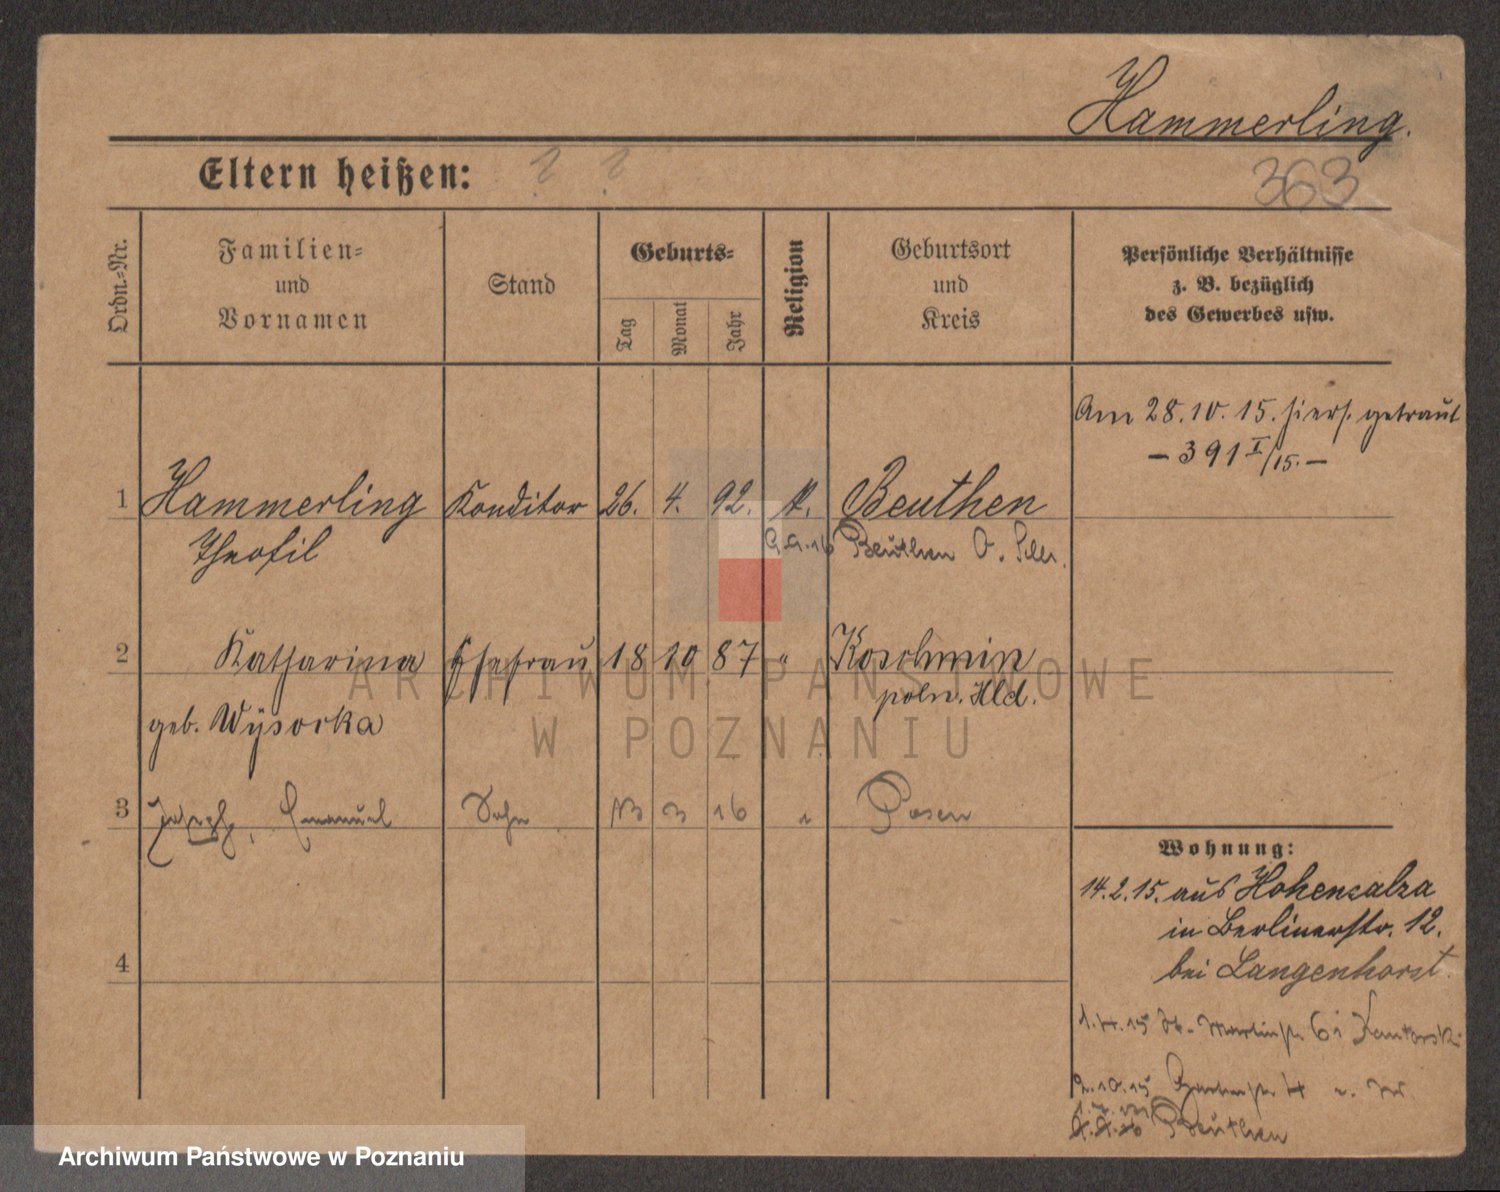 Hammerling.
Eltern heißen: ? ?
363
Ordn.-Nr.
Familien-
und
Vornamen
Stand
Geburts-
Tag
Monat
Jahr
Religion
Geburtsort
und
Kreis
Persönliche Verhältnisse
z. B. bezüglich
des Gewerbes usw.
Am 28.10.15. hiers. getraut
- 391 I/15. -
1 Hammerling Konditor 26. 4. 92. k. Beuthen
Theofil Beuthen O. Schl.
2 Katharina Ehefrau 18 10 87 " Koschmin
poln. Hld.
geb. Wÿsocka
3 Joseph, Emanuel Sohn 13 3 16 " Posen
4
Wohnung:
14.2.15. aus Hohensalza
in Berlinerstr. 12.
bei Langenhorst.
1.4.15 St. Martinstr 61 Kantorski
2.10.15 Gartenstr 4
Beuthen
ARCHIWUM PAŃSTWOWE
W POZNANIU
Archiwum Państwowe w Poznaniu